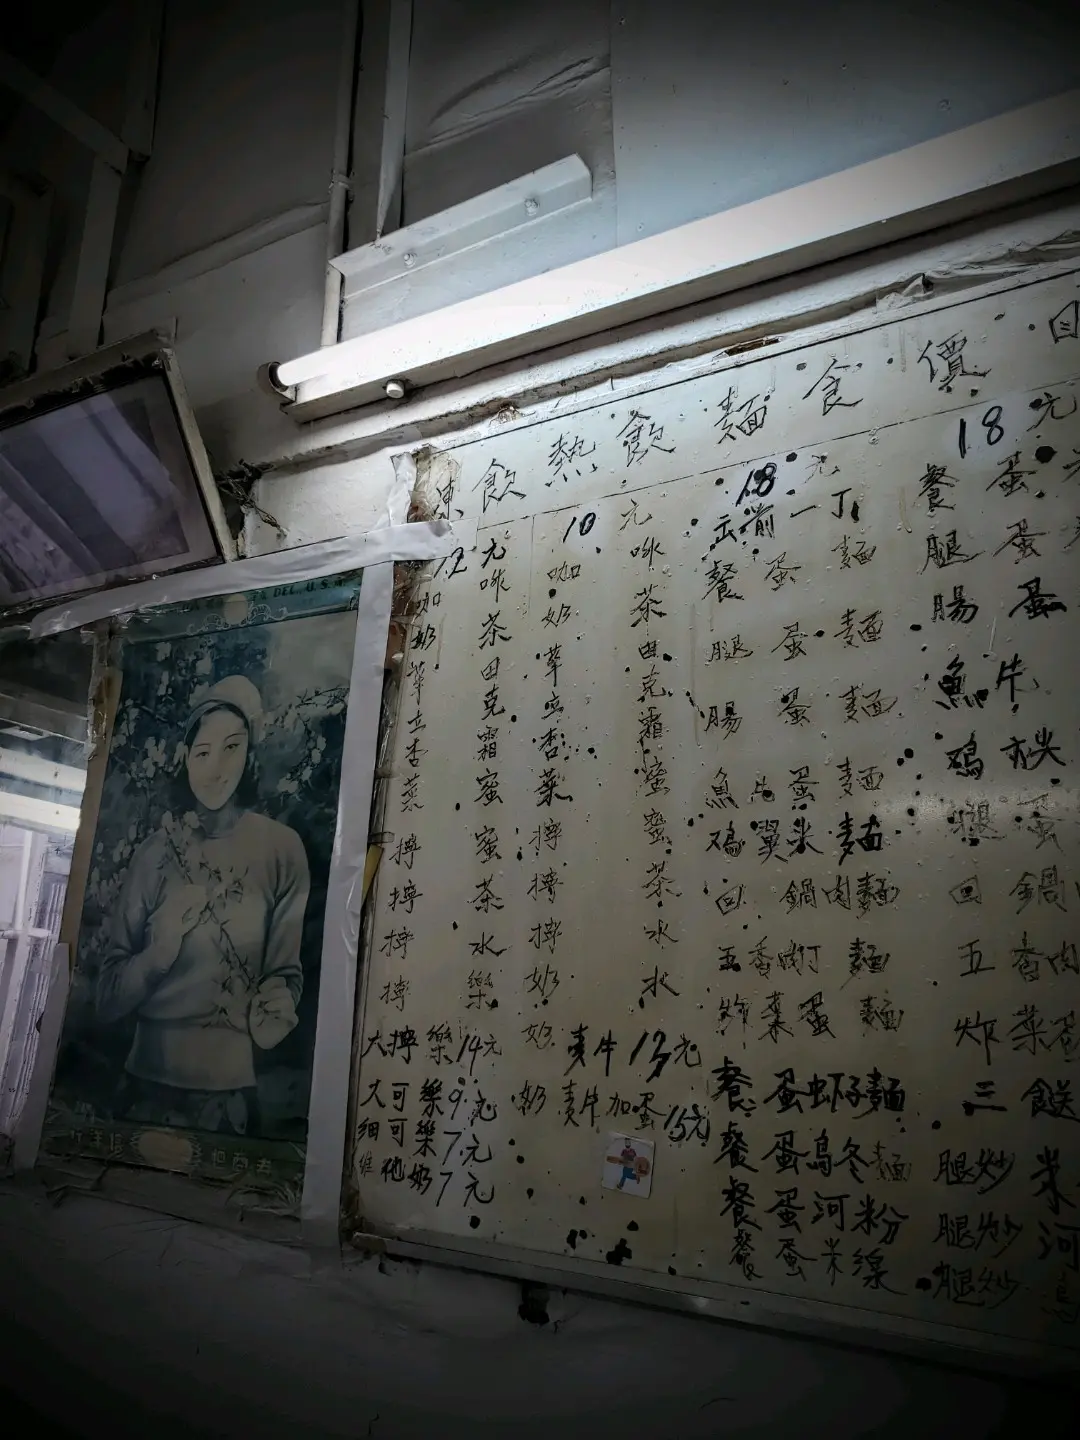 凍飲熱飲麵食價目
12元
咖啡
奶茶
華田
立克
杏霜
菜蜜
檸蜜
檸茶
檸水
檸樂
大檸樂14元
大可樂9元
細可樂7元
維他奶7元
10元
咖啡
奶茶
華田
立克
杏霜
菜蜜
檸蜜
檸茶
檸水
奶水
麦牛13元
奶麦牛加蛋15元
18元
丁
餐蛋麵
腿蛋麵
腸蛋麵
魚片蛋麵
鸡翼米麵
回鍋肉麵
五香肉丁麵
炸菜蛋麵
餐蛋蝦子麵
餐蛋烏冬麵
餐蛋河粉
餐蛋米線
18元
餐蛋
腿蛋
腸蛋
魚牛
鸡扒
腿蛋
回鍋
五香肉
炸菜蛋
三餸
腿炒米
腿炒河
腿炒